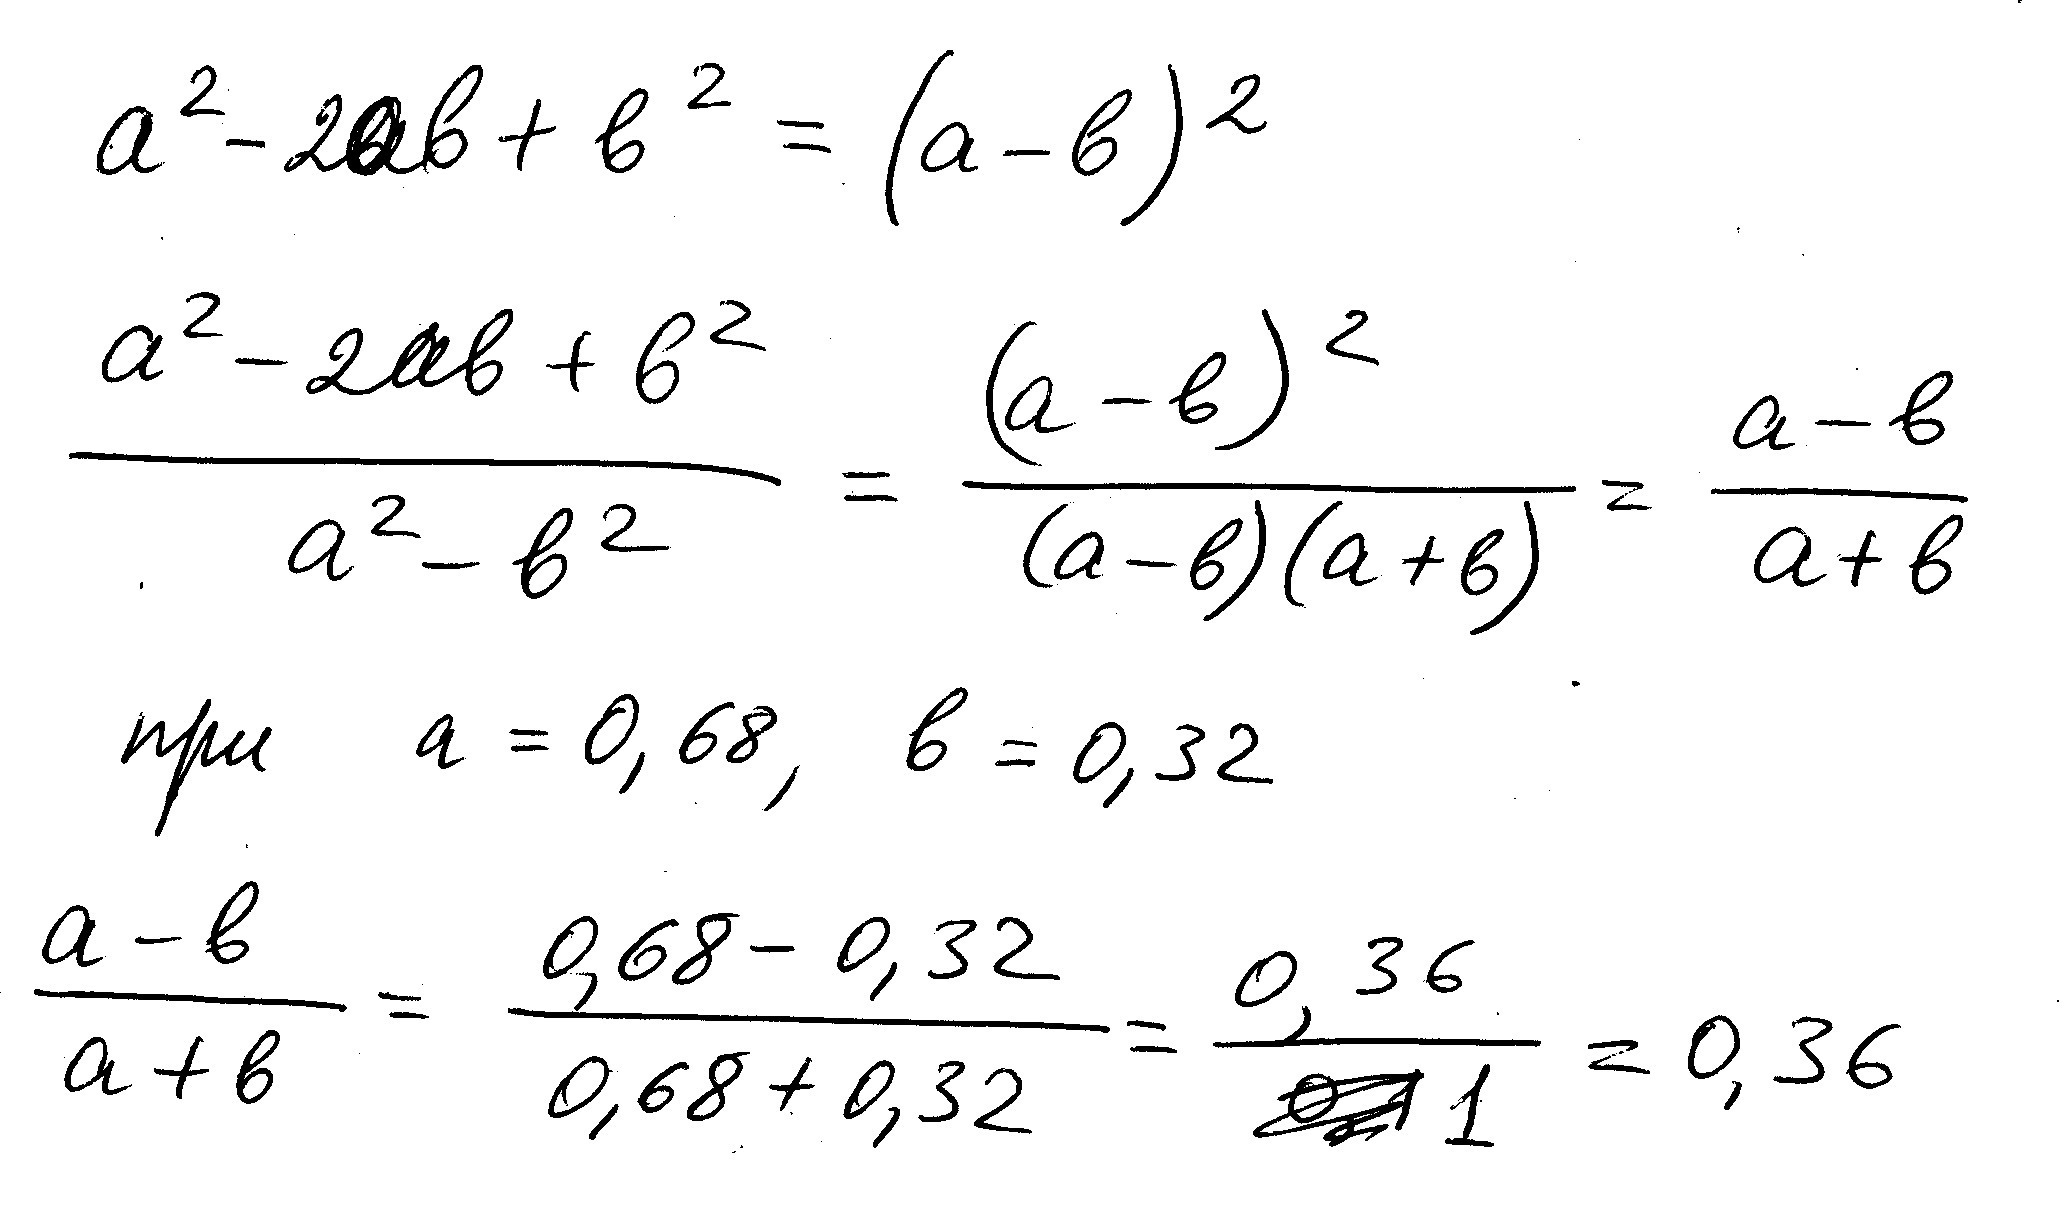 a² - 2ab + b² = (a - b)²
(a² - 2ab + b²) / (a² - b²) = (a - b)² / ((a - b)(a + b)) = (a - b) / (a + b)
при a = 0,68, b = 0,32
(a - b) / (a + b) = (0,68 - 0,32) / (0,68 + 0,32) = 0,36 / 1 = 0,36